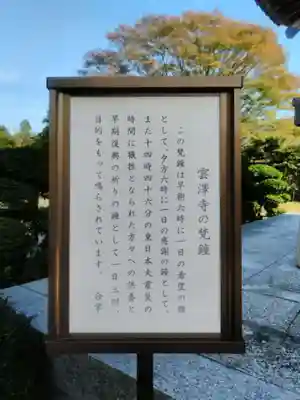 雲澤寺の梵鐘
この梵鐘は早朝六時に一日の希望の鐘
として、夕方六時に一日の感謝の鐘として、
また十四時四十六分の東日本大震災の
時間に犠牲となられた方々への供養と
早期復興の祈りの鐘として一日三回、
目的をもって鳴らされています。　合掌